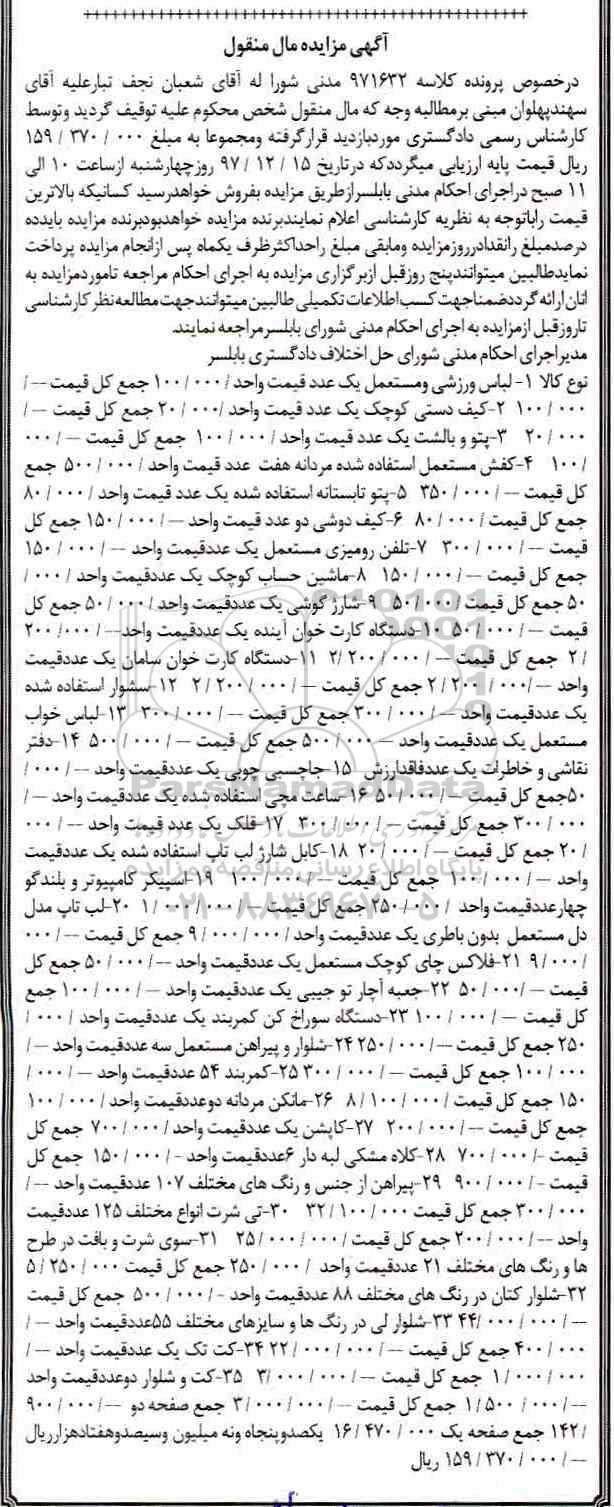 آگهی مزایده مال منقول
درخصوص پرونده کلاسه ۹۷۱۶۳۲ مدنی شورا له آقای شعبان نجف تبارعلیه آقای
سهندپهلوان مبنی برمطالبه وجه که مال منقول شخص محکوم علیه توقیف گردید وتوسط
کارشناس رسمی دادگستری موردبازدید قرارگرفته ومجموعا به مبلغ ۰۰۰ / ۳۷۰ / ۱۵۹
ریال قیمت پایه ارزیابی میگرددکه درتاریخ ۱۵ / ۱۲ / ۹۷ روزچهارشنبه ازساعت ۱۰ الی
۱۱ صبح دراجرای احکام مدنی بابلسرازطریق مزایده بفروش خواهدرسید کسانیکه بالاترین
قیمت راباتوجه به نظریه کارشناسی اعلام نمایندبرنده مزایده خواهدبودبرنده مزایده بایدده
درصدمبلغ رانقدادرروزمزایده ومابقی مبلغ راحداکثرظرف یکماه پس ازانجام مزایده پرداخت
نمایدطالبین میتوانندپنج روزقبل ازبرگزاری مزایده به اجرای احکام مراجعه تاموردمزایده به
اتان ارائه گرددضمناجهت کسب اطلاعات تکمیلی طالبین میتوانندجهت مطالعه نظر کارشناسی
تاروزقبل ازمزایده به اجرای احکام مدنی شورای بابلسرمراجعه نمایند.
مدیراجرای احکام مدنی شورای حل اختلاف دادگستری بابلسر
نوع کالا ۱- لباس ورزشی ومستعمل یک عدد قیمت واحد / ۰۰۰ / ۱۰۰ جمع کل قیمت -- /
۰۰۰ / ۱۰۰ ۲-کیف دستی کوچک یک عدد قیمت واحد / ۰۰۰ / ۲۰ جمع کل قیمت -- /
۰۰۰ / ۲۰ ۳-پتو و بالشت یک عدد قیمت واحد / ۰۰۰ / ۱۰۰ جمع کل قیمت -- / ۰۰۰
/ ۱۰۰ ۴-کفش مستعمل استفاده شده مردانه هفت عدد قیمت واحد / ۰۰۰ / ۵۰۰ جمع
کل قیمت -- / ۰۰۰ / ۳۵۰ ۵-پتو تابستانه استفاده شده یک عدد قیمت واحد / ۰۰۰ / ۸۰
جمع کل قیمت / ۰۰۰ / ۸۰ ۶-کیف دوشی دو عدد قیمت واحد -- / ۰۰۰ / ۱۵۰ جمع کل
قیمت -- / ۰۰۰ / ۳۰۰ ۷-تلفن رومیزی مستعمل یک عددقیمت واحد -- / ۰۰۰ / ۱۵۰
جمع کل قیمت -- / ۰۰۰ / ۱۵۰ ۸-ماشین حساب کوچک یک عددقیمت واحد / ۰۰۰ /
۵۰ جمع کل قیمت / ۰۰۰ / ۵۰ ۹-شارژ گوشی یک عددقیمت واحد / ۰۰۰ / ۵۰ جمع کل
قیمت -- / ۰۰۰ / ۵۰ ۱۰-دستگاه کارت خوان آینده یک عددقیمت واحد-- / ۰۰۰ / ۲۰۰
/ ۲ جمع کل قیمت-- / ۰۰۰ / ۲۰۰ / ۲ ۱۱-دستگاه کارت خوان سامان یک عددقیمت
واحد -- / ۰۰۰ / ۲۰۰ / ۲ جمع کل قیمت -- / ۰۰۰ / ۲۰۰ / ۲ ۱۲-سشوار استفاده شده
یک عددقیمت واحد -- / ۰۰۰ / ۳۰۰ جمع کل قیمت -- / ۰۰۰ / ۳۰۰ ۱۳-لباس خواب
مستعمل یک عددقیمت واحد -- ۰۰۰ / ۵۰۰ جمع کل قیمت -- / ۰۰۰ / ۵۰۰ ۱۴-دفتر
نقاشی و خاطرات یک عددفاقدارزش ۱۵-جاچسبی چوبی یک عددقیمت واحد -- / ۰۰۰ /
۵۰جمع کل قیمت -- / ۰۰۰ / ۵۰ ۱۶-ساعت مچی استفاده شده یک عددقیمت واحد -- /
۰۰۰ / ۳۰۰ جمع کل قیمت -- / ۰۰۰ / ۳۰۰ ۱۷-قلک یک عدد قیمت واحد -- / ۰۰۰
/ ۲۰ جمع کل قیمت -- / ۰۰۰ / ۲۰ ۱۸-کابل شارژ لب تاپ استفاده شده یک عددقیمت
واحد -- / ۰۰۰ / ۱۰۰ جمع کل قیمت -- / ۰۰۰ / ۱۰۰ ۱۹-اسپیکر کامپیوتر و بلندگو
چهارعددقیمت واحد / ۰۰۰ / ۲۵۰ جمع کل قیمت -- / ۰۰۰ / ۰۰۰ / ۱ ۲۰-لب تاپ مدل
دل مستعمل بدون باطری یک عددقیمت واحد / ۰۰۰ / ۰۰۰ / ۹ جمع کل قیمت -- / ۰۰۰
/ ۰۰۰ / ۹ ۲۱-فلاکس چای کوچک مستعمل یک عددقیمت واحد -- / ۰۰۰ / ۵۰ جمع کل
قیمت -- / ۰۰۰ / ۵۰ ۲۲-جعبه آچار تو جیبی یک عددقیمت واحد -- / ۰۰۰ / ۱۰۰ جمع
کل قیمت -- / ۰۰۰ / ۱۰۰ ۲۳-دستگاه سوراخ کن کمربند یک عددقیمت واحد / ۰۰۰ /
۲۵۰ جمع کل قیمت -- / ۰۰۰ / ۲۵۰ ۲۴-شلوار و پیراهن مستعمل سه عددقیمت واحد -- /
۰۰۰ / ۱۰۰ جمع کل قیمت -- / ۰۰۰ / ۳۰۰ ۲۵-کمربند ۵۴ عددقیمت واحد -- / ۰۰۰ /
۱۵۰ جمع کل قیمت / ۰۰۰ / ۱۰۰ / ۸ ۲۶-مانکن مردانه دوعددقیمت واحد / ۰۰۰ / ۱۰۰
جمع کل قیمت -- / ۰۰۰ / ۲۰۰ ۲۷-کاپشن یک عددقیمت واحد / ۰۰۰ / ۷۰۰ جمع کل
قیمت -/ ۰۰۰ / ۷۰۰ ۲۸-کلاه مشکی لبه دار ۶عددقیمت واحد - / ۰۰۰ / ۱۵۰ جمع کل
قیمت - / ۰۰۰ / ۹۰۰ ۲۹-پیراهن از جنس و رنگ های مختلف ۱۰۷ عددقیمت واحد -- /
۰۰۰ / ۳۰۰ جمع کل قیمت ۰۰۰ / ۱۰۰ / ۳۲ ۳۰-تی شرت انواع مختلف ۱۲۵ عددقیمت
واحد -- / ۰۰۰ / ۲۰۰ جمع کل قیمت / ۰۰۰ / ۰۰۰ / ۲۵ ۳۱-سوی شرت و بافت در طرح
ها و رنگ های مختلف ۲۱ عددقیمت واحد / ۰۰۰ / ۲۵۰ جمع کل قیمت ۰۰۰ / ۲۵۰ / ۵
۳۲-شلوار کتان در رنگ های مختلف ۸۸ عددقیمت واحد - / ۰۰۰ / ۵۰۰ جمع کل قیمت
-- / ۰۰۰ / ۰۰۰ / ۴۴ ۳۳-شلوار لی در رنگ ها و سایزهای مختلف ۵۵عددقیمت واحد -- /
۰۰۰ / ۴۰۰ جمع کل قیمت -- / ۰۰۰ / ۰۰۰ / ۲۲ ۳۴-کت تک یک عددقیمت واحد -- /
۰۰۰ / ۰۰۰ / ۱ جمع کل قیمت -- / ۰۰۰ / ۰۰۰ / ۳ ۳۵-کت و شلوار دوعددقیمت واحد
-- / ۰۰۰ / ۵۰۰ / ۱ جمع کل قیمت -- / ۰۰۰ / ۰۰۰ / ۳ جمع صفحه دو -- / ۰۰۰ / ۹۰۰
/ ۱۴۲ جمع صفحه یک ۰۰۰ / ۴۷۰ / ۱۶ یکصدوپنجاه ونه میلیون وسیصدوهفتادهزارریال
-- / ۰۰۰ / ۳۷۰ / ۱۵۹ ریال
ParsNamadData
پایگاه اطلاع رسانی مناقصه و مزایده
۰۲۱-۸۸۳۴۹۶۷۰-۵